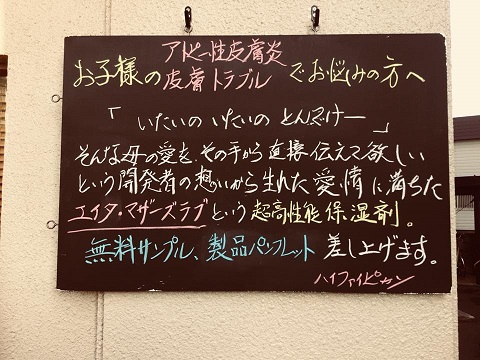 お子様の アトピー性皮膚炎 皮膚トラブル でお悩みの方へ
「いたいの いたいの とんでけー」
そんな母の愛を、その手から直接伝えて欲しい
という開発者の想いから生れた愛情に満ちた
エイタ・マザーズラブという超高性能保湿剤。
無料サンプル、製品パンフレット差し上げます。
ハイファイピカン